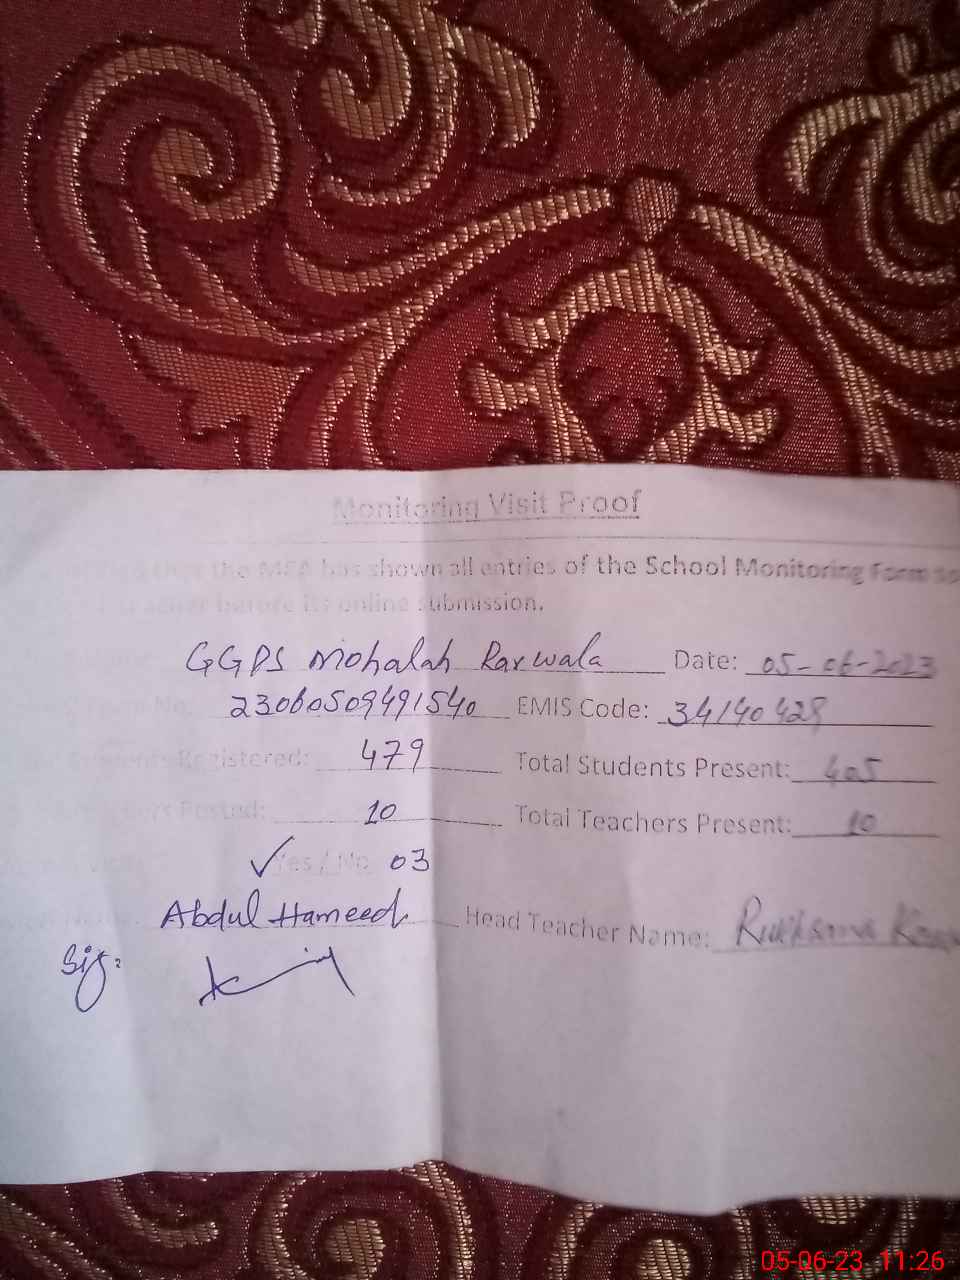 Monitoring Visit Proof
that the MEA has shown all entries of the School Monitoring Form to
before its online submission.
GGPS Mohalah Rarwala Date: 05-06-2023
No. 23060509491540 EMIS Code: 34140428
Students Registered: 479 Total Students Present: 405
Posted: 10 Total Teachers Present: 10
✓ Yes / No 03
Abdul Hameed Head Teacher Name: Rukhsana
Sig:
05-06-23 11:26